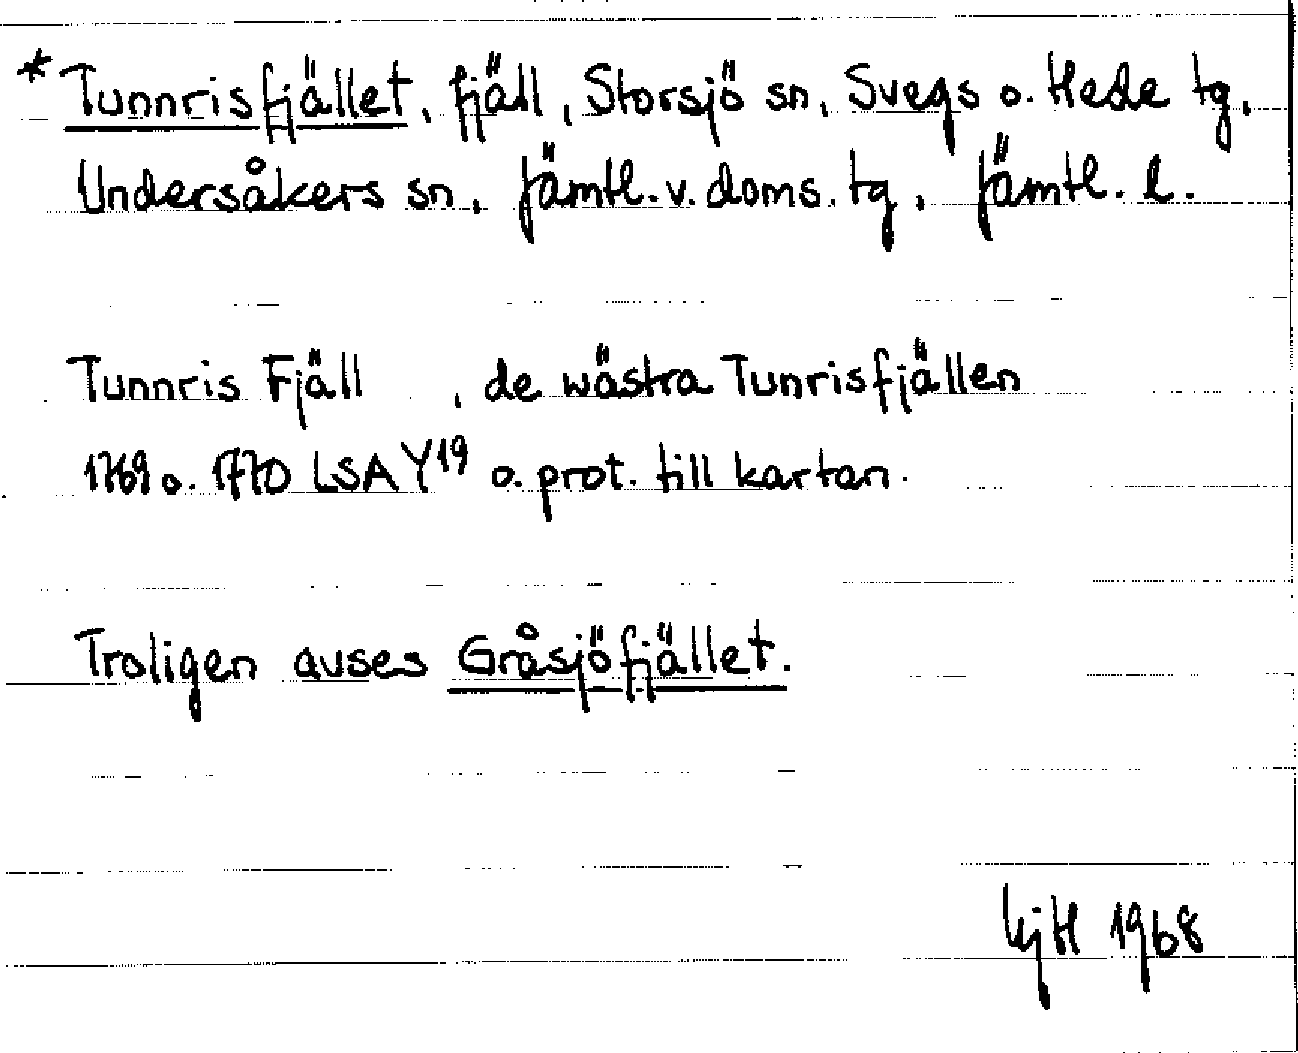 *Tunnrisfjället, fjäll, Storsjö sn, Svegs o. Hede tg,
Undersåkers sn, Jämtl. v. doms. tg, Jämtl. l.
Tunnris Fjäll , de wästra Tunrisfjällen
1769 o. 1770 LSA Y19 o. prot. till kartan.
Troligen avses Gråsjöfjället.
1968